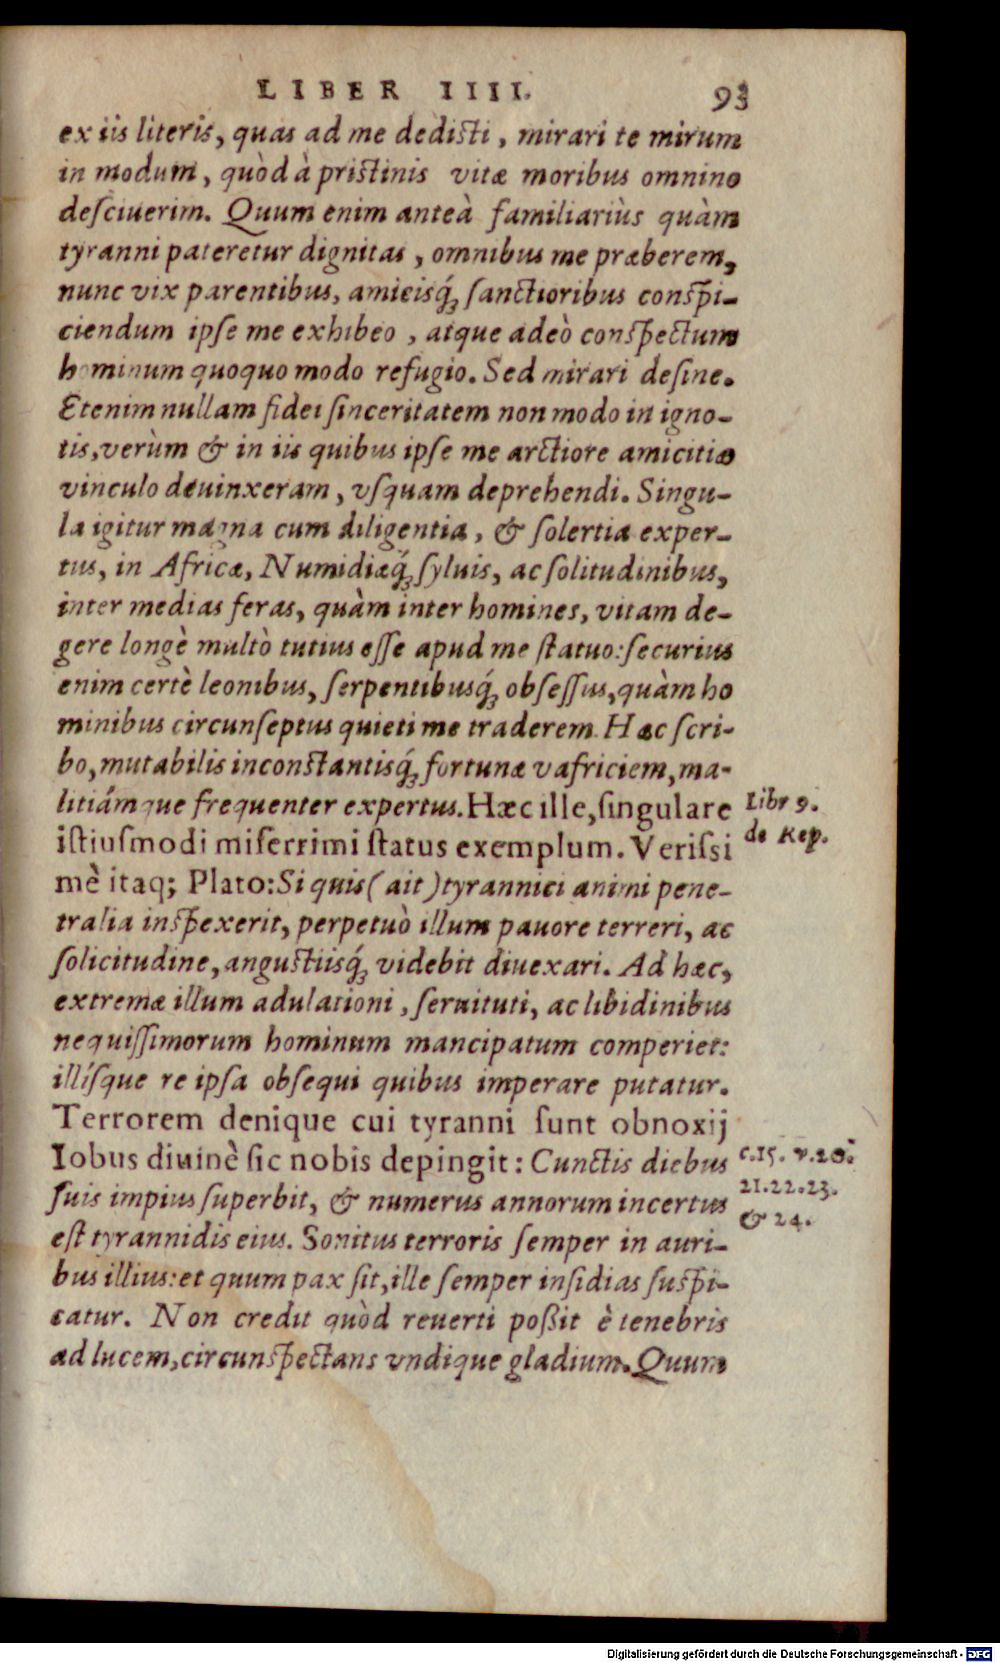 LIBER IIII. 93
ex iis literis, quas ad me dedisti, mirari te mirum
in modum, quòd à pristinis vitæ moribus omnino
desciuerim. Quum enim anteà familiariùs quàm
tyranni pateretur dignitas, omnibus me præberem,
nunc vix parentibus, amicisq́; sanctioribus conspi-
ciendum ipse me exhibeo, atque adeò conspectum
hominum quoquo modo refugio. Sed mirari desine.
Etenim nullam fidei sinceritatem non modo in igno-
tis, verùm & in iis quibus ipse me arctiore amicitiæ
vinculo deuinxeram, vsquam deprehendi. Singu-
la igitur magna cum diligentia, & solertia exper-
tus, in Africæ, Numidiæq́; syluis, ac solitudinibus,
inter medias feras, quàm inter homines, vitam de-
gere longè multò tutius esse apud me statuo: securius
enim certè leonibus, serpentibusq́; obsessus, quàm ho
minibus circunseptus quieti me traderem. Hæc scri-
bo, mutabilis inconstantisq́; fortunæ vafriciem, ma-
litiámque frequenter expertus. Hæc ille, singulare
istiusmodi miserrimi status exemplum. Verissi
mè itaq; Plato: Si quis (ait) tyrannici animi pene-
tralia inspexerit, perpetuò illum pauore terreri, ac
solicitudine, angustiisq́; videbit diuexari. Ad hæc,
extremæ illum adulationi, seruituti, ac libidinibus
nequissimorum hominum mancipatum comperiet:
illísque re ipsa obsequi quibus imperare putatur.
Terrorem denique cui tyranni sunt obnoxij
Iobus diuinè sic nobis depingit: Cunctis diebus
suis impius superbit, & numerus annorum incertus
est tyrannidis eius. Sonitus terroris semper in auri-
bus illius: et quum pax sit, ille semper insidias suspi-
catur. Non credit quòd reuerti poßit è tenebris
ad lucem, circunspectans vndique gladium. Quum
Libr 9.
de Rep.
c.15. v.20.
21.22.23.
& 24.
Digitalisierung gefördert durch die Deutsche Forschungsgemeinschaft - DFG